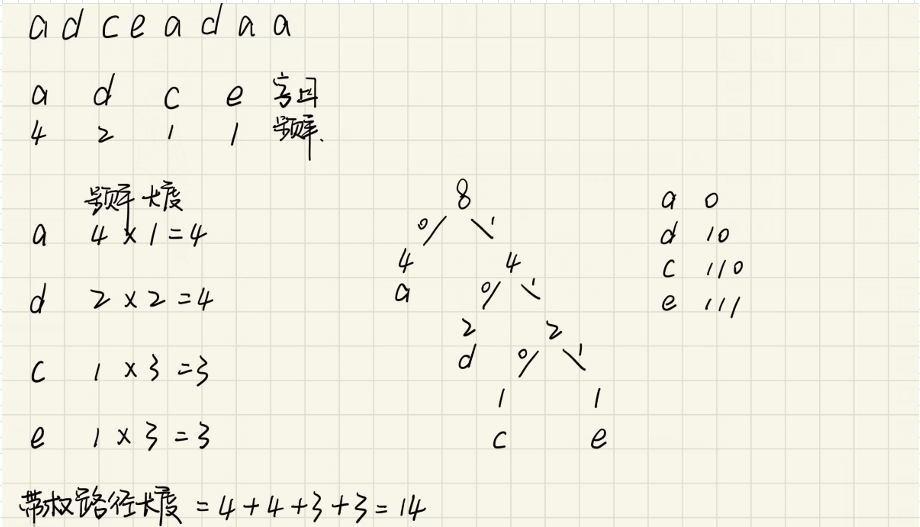 a d c e a d a a
a d c e 字母
4 2 1 1 频率.
频率 长度
a 4 × 1 = 4
d 2 × 2 = 4
c 1 × 3 = 3
e 1 × 3 = 3
8
0 1
4 4
a 0 1
2 2
d 0 1
1 1
c e
a 0
d 10
c 110
e 111
带权路径长度 = 4 + 4 + 3 + 3 = 14